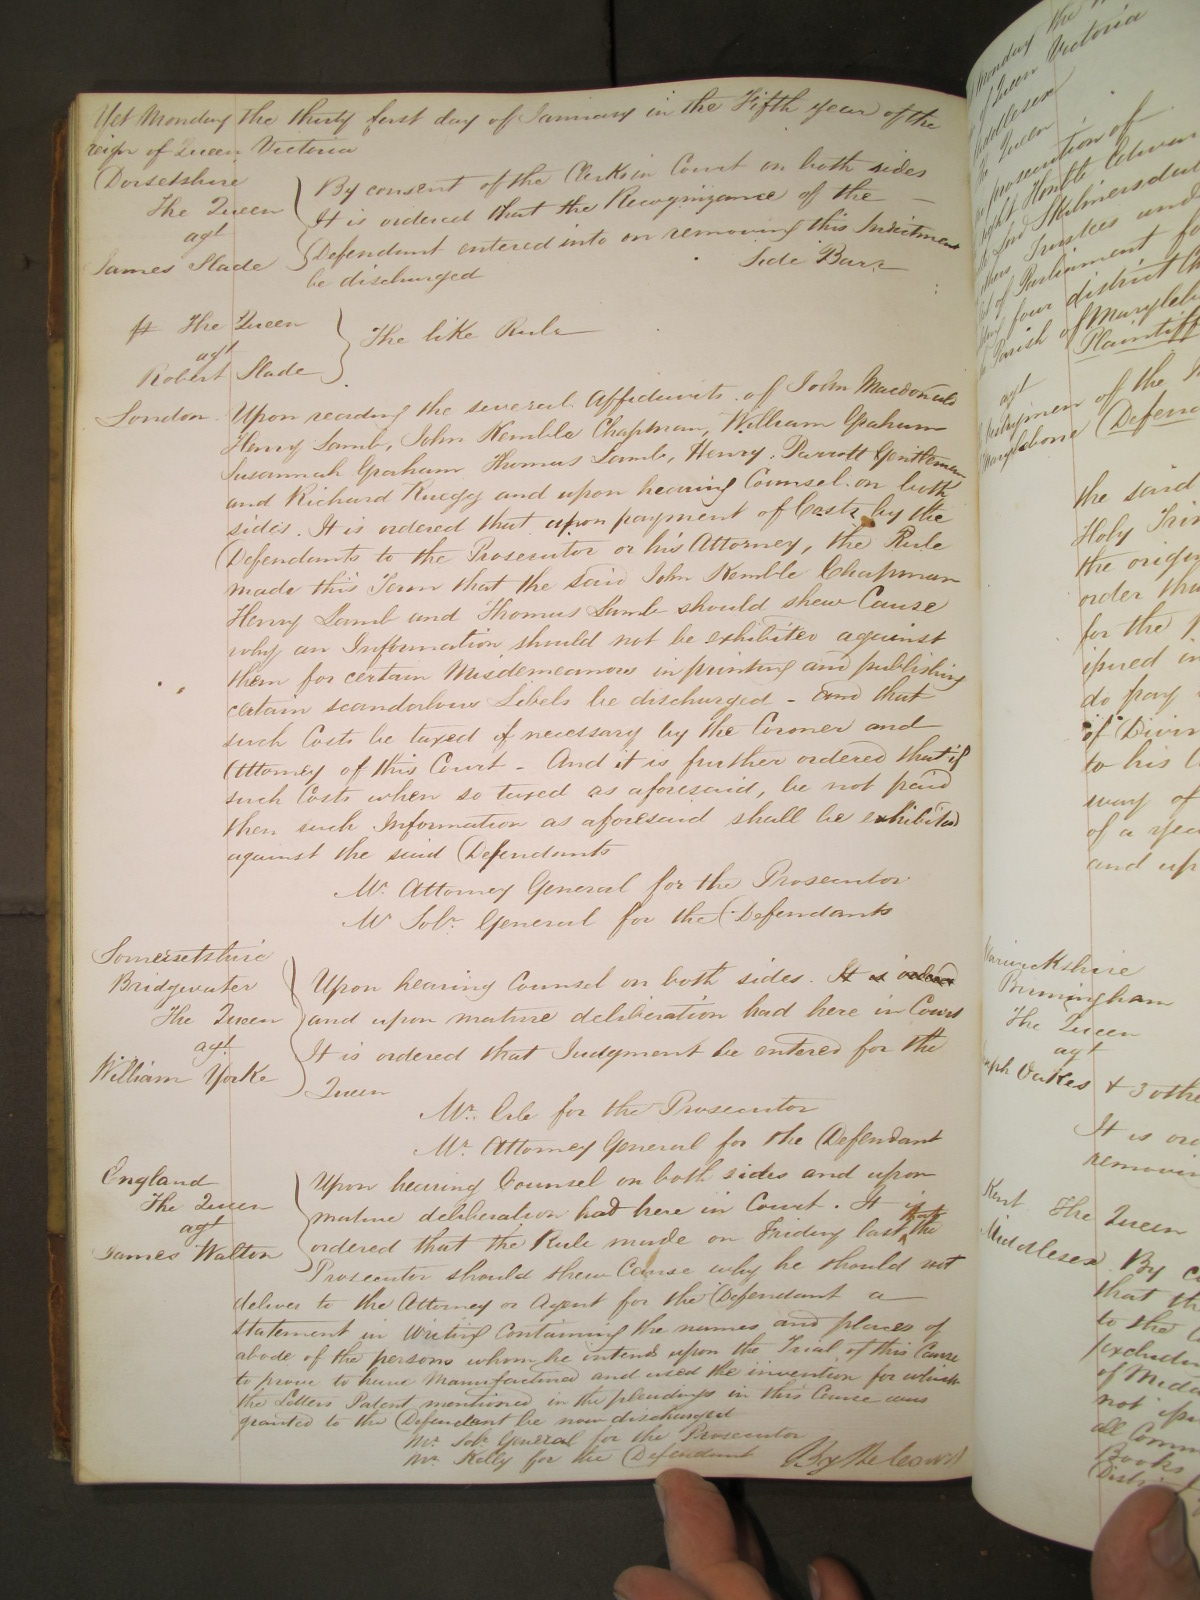 Yet Monday the thirty first day of January in the Fifth year of the
reign of Queen Victoria
Dorsetshire
The Queen
agt
James Slade
By consent of the Clerks in Court on both sides
It is ordered that the Recognizance of the
Defendant entered into on removing this Indictment
be discharged
Side Bar
The Queen
agt
Robert Slade
The like Rule
London Upon reading the several Affidavits of John Macdonald
Henry Lamb, John Kemble Chapman, William Graham
Susannah Graham Thomas Lamb, Henry Parrott Gentlemen
and Richard Ruegg and upon hearing Counsel on both
sides. It is ordered that upon payment of Costs by the
Defendants to the Prosecutor or his Attorney, the Rule
made this Term that the said John Kemble Chapman
Henry Lamb and Thomas Lamb should shew Cause
why an Information should not be exhibited against
them for certain Misdemeanors in printing and publishing
certain scandalous Libels be discharged - and that
such Costs be taxed if necessary by the Coroner and
Attorney of this Court - And it is further ordered that if
such Costs when so taxed as aforesaid, be not paid
then such Information as aforesaid shall be exhibited
against the said Defendants
Mr. Attorney General for the Prosecutor
Mr Solr. General for the Defendants
Somersetshire
Bridgwater
The Queen
agt
William Yorke
Upon hearing Counsel on both sides. It is ordered
and upon mature deliberation had here in Court
It is ordered that Judgment be entered for the
Queen
Mr. Erle for the Prosecutor
Mr. Attorney General for the Defendant
England
The Queen
agt
James Walton
Upon hearing Counsel on both sides and upon
mature deliberation had here in Court. It is
ordered that the Rule made on Friday last the
Prosecutor should shew Cause why he should not
deliver to the Attorney or Agent for the Defendant a
statement in writing containing the names and places of
abode of the persons whom he intends upon the Trial of this Cause
to prove to have manufactured and used the invention for which
the Letters Patent mentioned in the pleadings in this Cause was
granted to the Defendant be now discharged
Mr. Solr. General for the Prosecutor
Mr. Kelly for the Defendant
By the Court
Monday the
of Queen Victoria
The Queen
prosecution of
Trustees and
of Parliament for
four district
Parish of Marylebone
Plaintiff
agt
Vestrymen of the
Marylebone Defend
the said
Holy Trin
the orig
order that
for the
do pay
of Divin
to his
way of
of a year
and up
Warwickshire
Birmingham
The Queen
agt
Joseph Oakes & 3 others
It is or
removing
Kent The Queen
Middlesex By c
that the
to the
of Midd
not
all Comm
Books
Distri